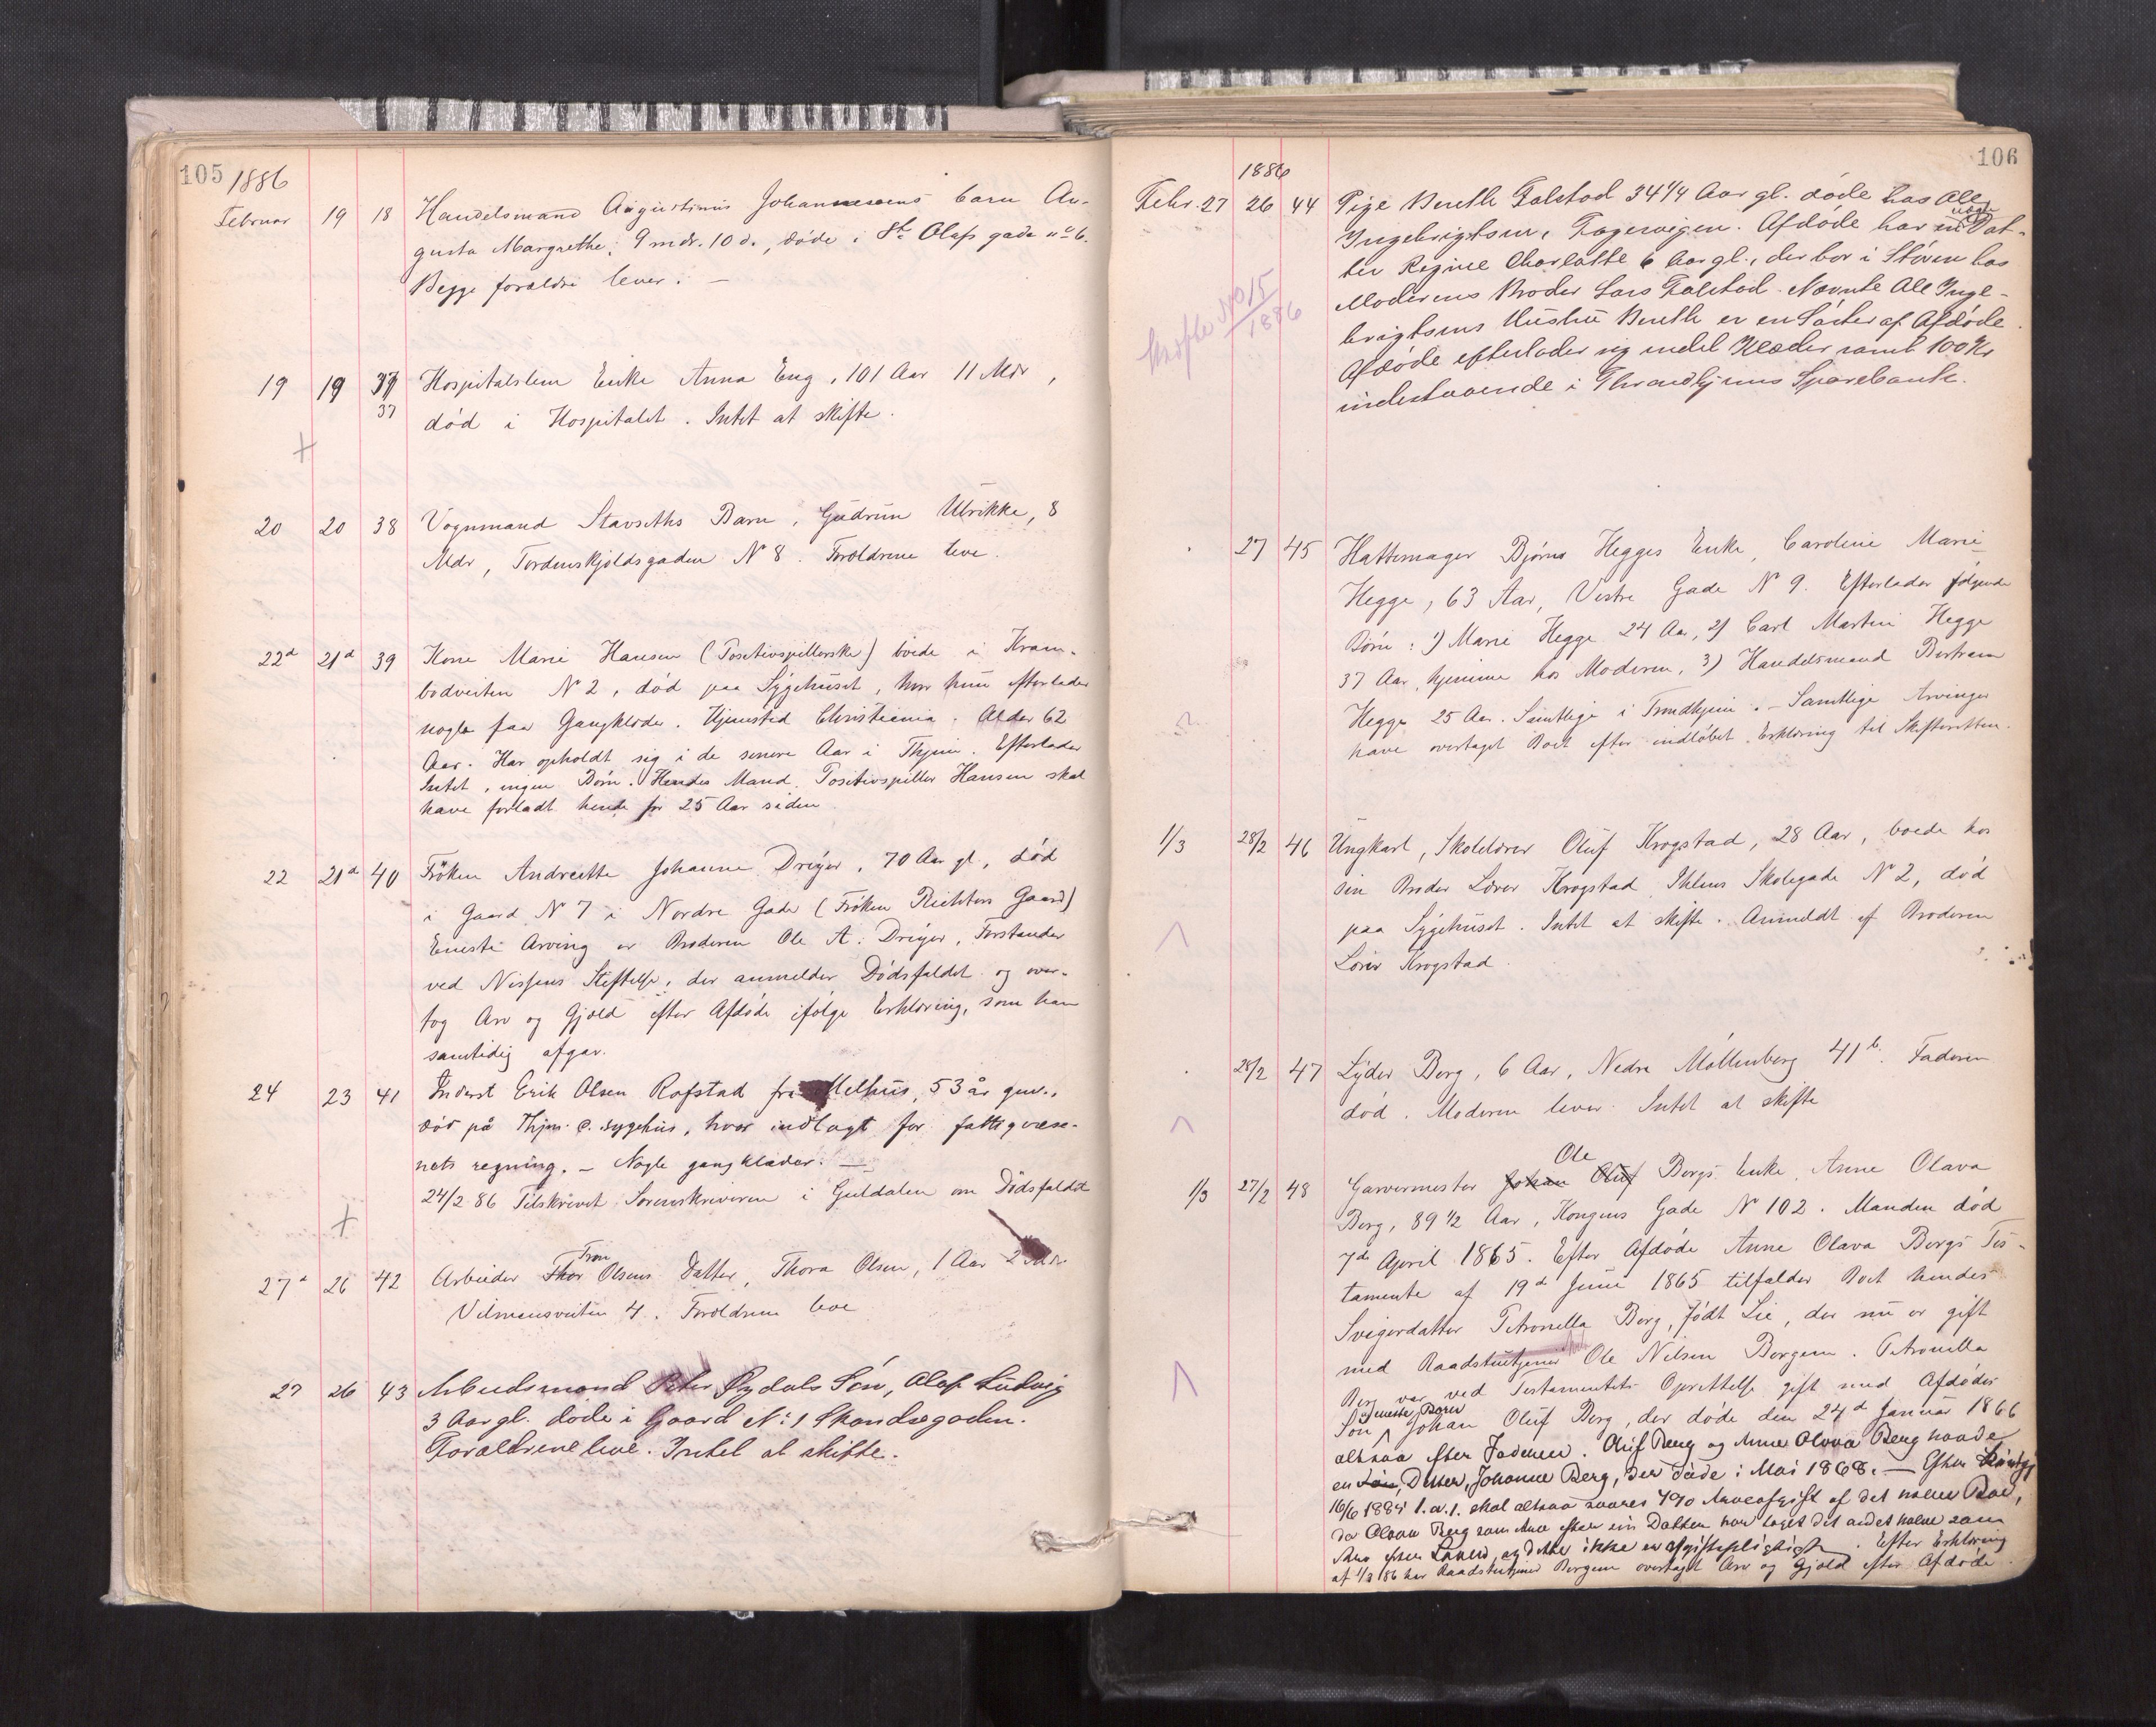 105 1886
Februar 19 18 Handelsmand Augustinus Johannesens barn Au-
gusta Margrethe, 9 mdr. 10 d., døde i St. Olafs gade no 6.
Begge forældre lever. —
19 19 37 Hospitalslem Enke Anna Eng, 101 Aar 11 Mdr,
37
død i Hospitalet. Intet at skifte.
20 20 38 Vognmand Stavseths Barn, Gudrun Ulrikke, 8
Mdr, Tordenskjoldsgaden N 8. Forældrene leve.
22d 21d 39 Kone Marie Hansen (Positivspillerske) boede i Kram-
bodveiten N 2, død paa Sygehuset, hvor hun efterlader
nogle faa Gangklæder. Hjemsted Christiania. Alder 62
Aar. Har opholdt sig i de senere Aar i Thjem. Efterlader
Intet, ingen Børn. Hendes Mand, Positivspiller Hansen skal
have forladt hende for 25 Aar siden
22 21d 40 Frøken Andreette Johanne Dreyer, 70 Aar gl, død
i Gaard N 7 i Nordre Gade (Frøken Richters Gaard)
Eneste Arving er Broderen Ole A. Dreyer, Forstander
ved Nissens Stiftelse, der anmelder Dødsfaldet og over-
tog Arv og Gjæld efter Afdøde ifølge Erklæring, som han
samtidig afgav.
24 23 41 Inderst Erik Olsen Rofstad fra Melhus, 53 år gm.,
død på Thjms. c. sygehus, hvor indlagt for fattigvæse-
nets regning. — Nogle gangklæder. —
24/2 86 Tilskrevet Sorenskriveren i Guldalen om Dødsfaldet
Tron
27d 26 42 Arbeider Thor Olsens Datter, Thora Olsen, 1 Aar 2 Mdr.
Vilmansveiten 4. Forældrene leve
27 26 43 Arbeidsmand Peter Øydals Søn, Olaf Ludvig
3 Aar gl. døde i Gaard No 1 Skandsegaden.
Forældrene leve. Intet at skifte.
106
1886
Febr. 27 26 44 Pige Berethe Falstad 34 1/4 Aar gl. døde hos Ole
Ingebrigtsen, Fagervigen. Afdøde har en uægte Dat-
ter Regine Charlotte 6 Aar gl., der bor i Støren hos
Moderens Broder Lars Falstad. Nævnte Ole Inge-
brigtsens Hustru Berethe er en Søster af Afdøde.
Afdøde efterlader sig endel Klæder samt 100 Kr
indestaaende i Throndhjems Sparebank.
Skifte No 15
1886
27 45 Hattemager Bjørns Hegges Enke, Caroline Marie
Hegge, 63 Aar, Vestre Gade N 9. Efterlader følgende
Børn: 1) Marie Hegge 24 Aar, 2) Carl Martin Hegge
37 Aar, hjemme hos Moderen, 3) Handelsmand Bertram
Hegge 25 Aar. Samtlige i Trondhjem. — Samtlige Arvinger
have overtaget Boet efter indløbet Erklæring til Skifteretten.
1/3 28/2 46 Ungkarl, Skolelærer Oluf Krogstad, 28 Aar, boede hos
sin Broder Lærer Krogstad Ihlens Skolegade N 2, død
paa Sygehuset. Intet at skifte. Anmeldt af Broderen
Lærer Krogstad
28/2 47 Lyder Berg, 6 Aar, Nedre Møllenberg 41b. Faderen
død. Moderen lever. Intet at skifte
Ole
1/3 27/2 48 Garvermester Johan Oluf Bergs Enke, Anne Olava
Berg, 89 1/2 Aar, Kongens Gade N 102. Manden død
7d April 1865. Efter Afdøde Anne Olava Bergs Tes-
tamente af 19d Juni 1865 tilfalder Boet hendes
Svigerdatter Petronella Berg, født Lie, der nu er gift
med Raadstutjener Ole Nilsen Borgen. Petronella
Berg var ved Testamentets Oprettelse gift med Afdødes
Søn eneste Barn Johan Oluf Berg, der døde den 24d Januar 1866
altsaa efter Faderen. Oluf Berg og Anne Olava Berg havde
en Datter, Johanne Berg, der døde i Mai 1868. — Efter
16/6 1884 skal altsaa svares 4% Arveafgift af det halve Boe,
da Olava Berg som Arv efter sin Datter har taget det andet halve som
Arv efter og dette ikke er afgiftspligtigt. Efter Erklæring
af 1/3 86 har Raadstutjener Borgen overtaget Arv og Gjæld efter Afdøde.